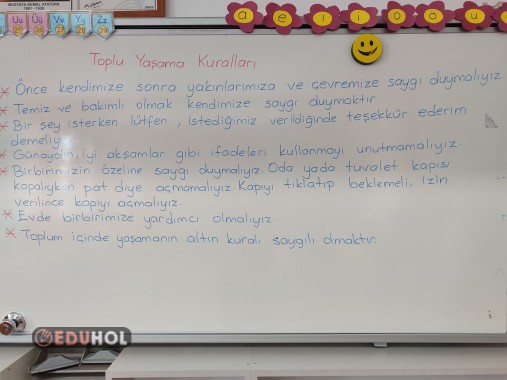 MUSTAFA KEMAL ATATÜRK
1881-1938
Uu Üü Vv Yy Zz
25 26 27 28 29
a e ı i o ö u
Toplu Yaşama Kuralları
* Önce kendimize sonra yakınlarımıza ve çevremize saygı duymalıyız.
* Temiz ve bakımlı olmak kendimize saygı duymaktır
* Bir şey isterken lütfen, istediğimiz verildiğinde teşekkür ederim
demeliyiz
* Günaydın, iyi akşamlar gibi ifadeleri kullanmayı unutmamalıyız.
* Birbirimizin özeline saygı duymalıyız. Oda yada tuvalet kapısı
kapalıyken pat diye açmamalıyız. Kapıyı tıklatıp beklemeli, izin
verilince kapıyı açmalıyız.
* Evde birbirimize yardımcı olmalıyız.
* Toplum içinde yaşamanın altın kuralı saygılı olmaktır.
EDUHOL